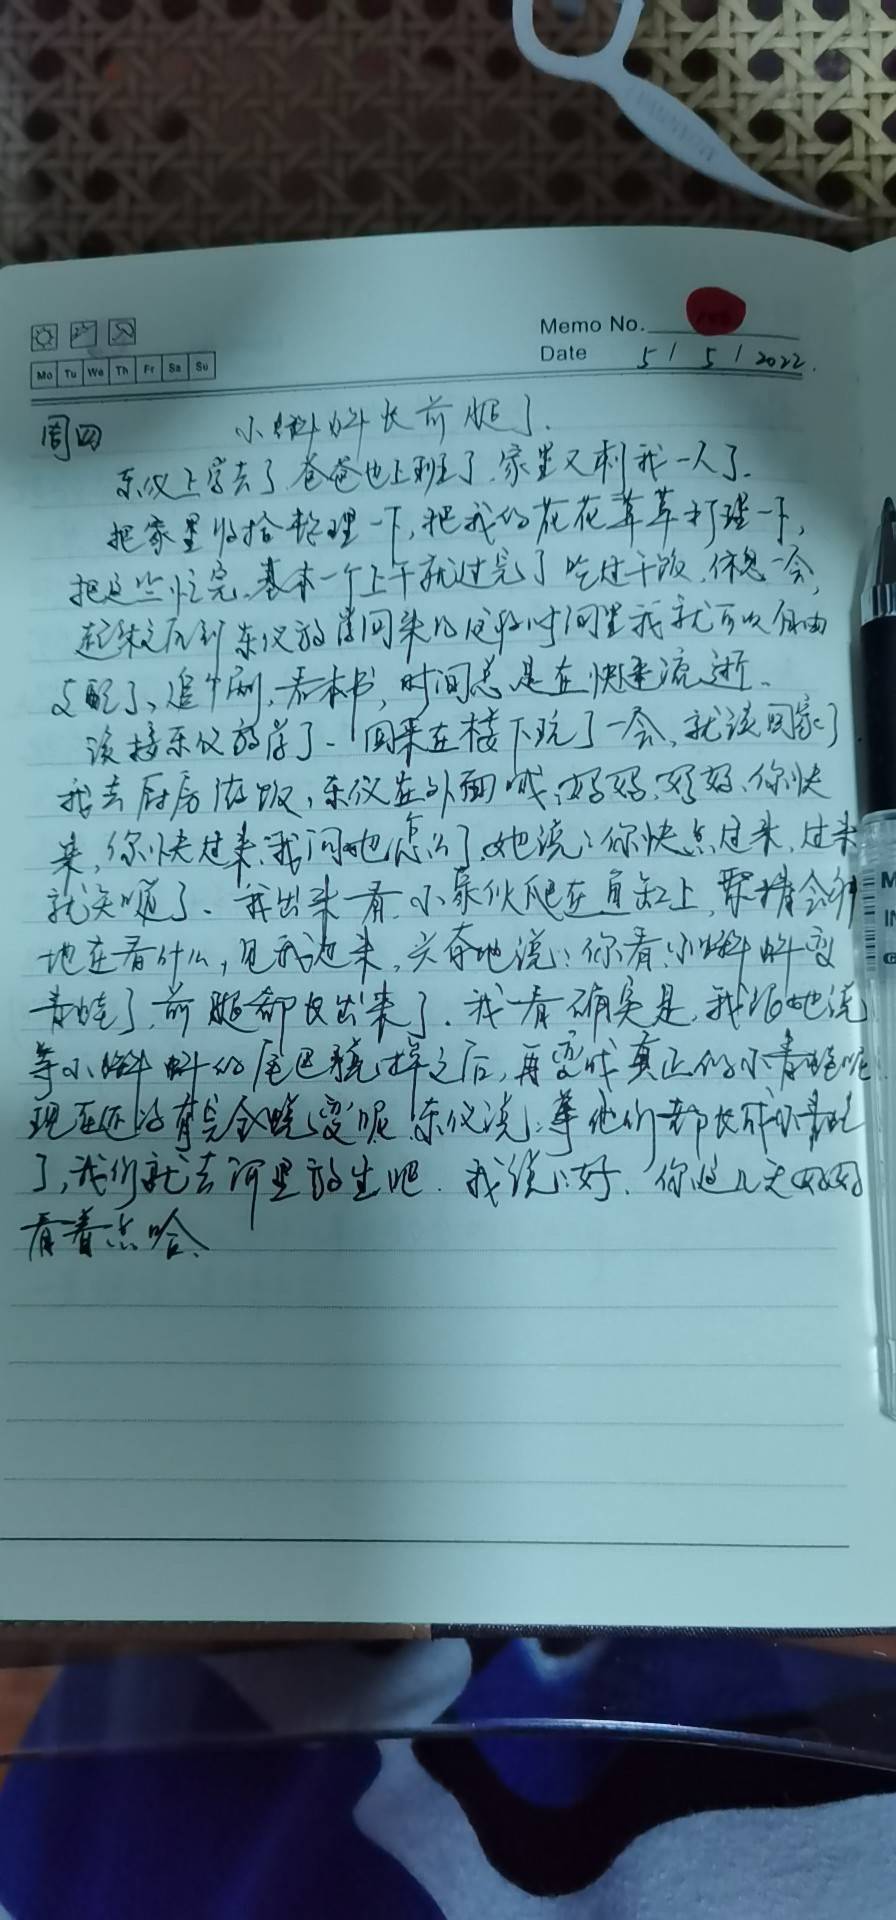 Memo No.
Date 5 / 5 / 2022.
Mo Tu We Th Fr Sa Su
周四 小蝌蚪长前腿了.
东仪上学去了.爸爸也上班了.家里又剩我一人了.
把家里收拾整理一下,把我的花花草草打理一下,
把这些忙完.基本一个上午就过完了吃过午饭.休息一会,
起来之后到东仪放学回来的这段时间里我就可以自由
支配了、追个剧,看本书,时间总是在快速流逝.
该接东仪放学了.回来在楼下玩了一会、就该回家了
我去厨房做饭,东仪在外面喊:妈妈,妈妈、你快
来,你快过来.我问她怎么了.她说:你快点过来.过来
就知道了.我出来一看.小家伙爬在鱼缸上,聚精会神
地在看什么,见我过来,兴奋地说:你看.小蝌蚪变
青蛙了.前腿都长出来了.我一看确实是,我跟她说
等小蝌蚪的尾巴 掉之后,再变成真正的小青蛙呢
现在还没有完全 变呢.东仪说:等他们都长成小青蛙
了,我们就去河里放生吧.我说:好.你这几天好好
看着点哈、